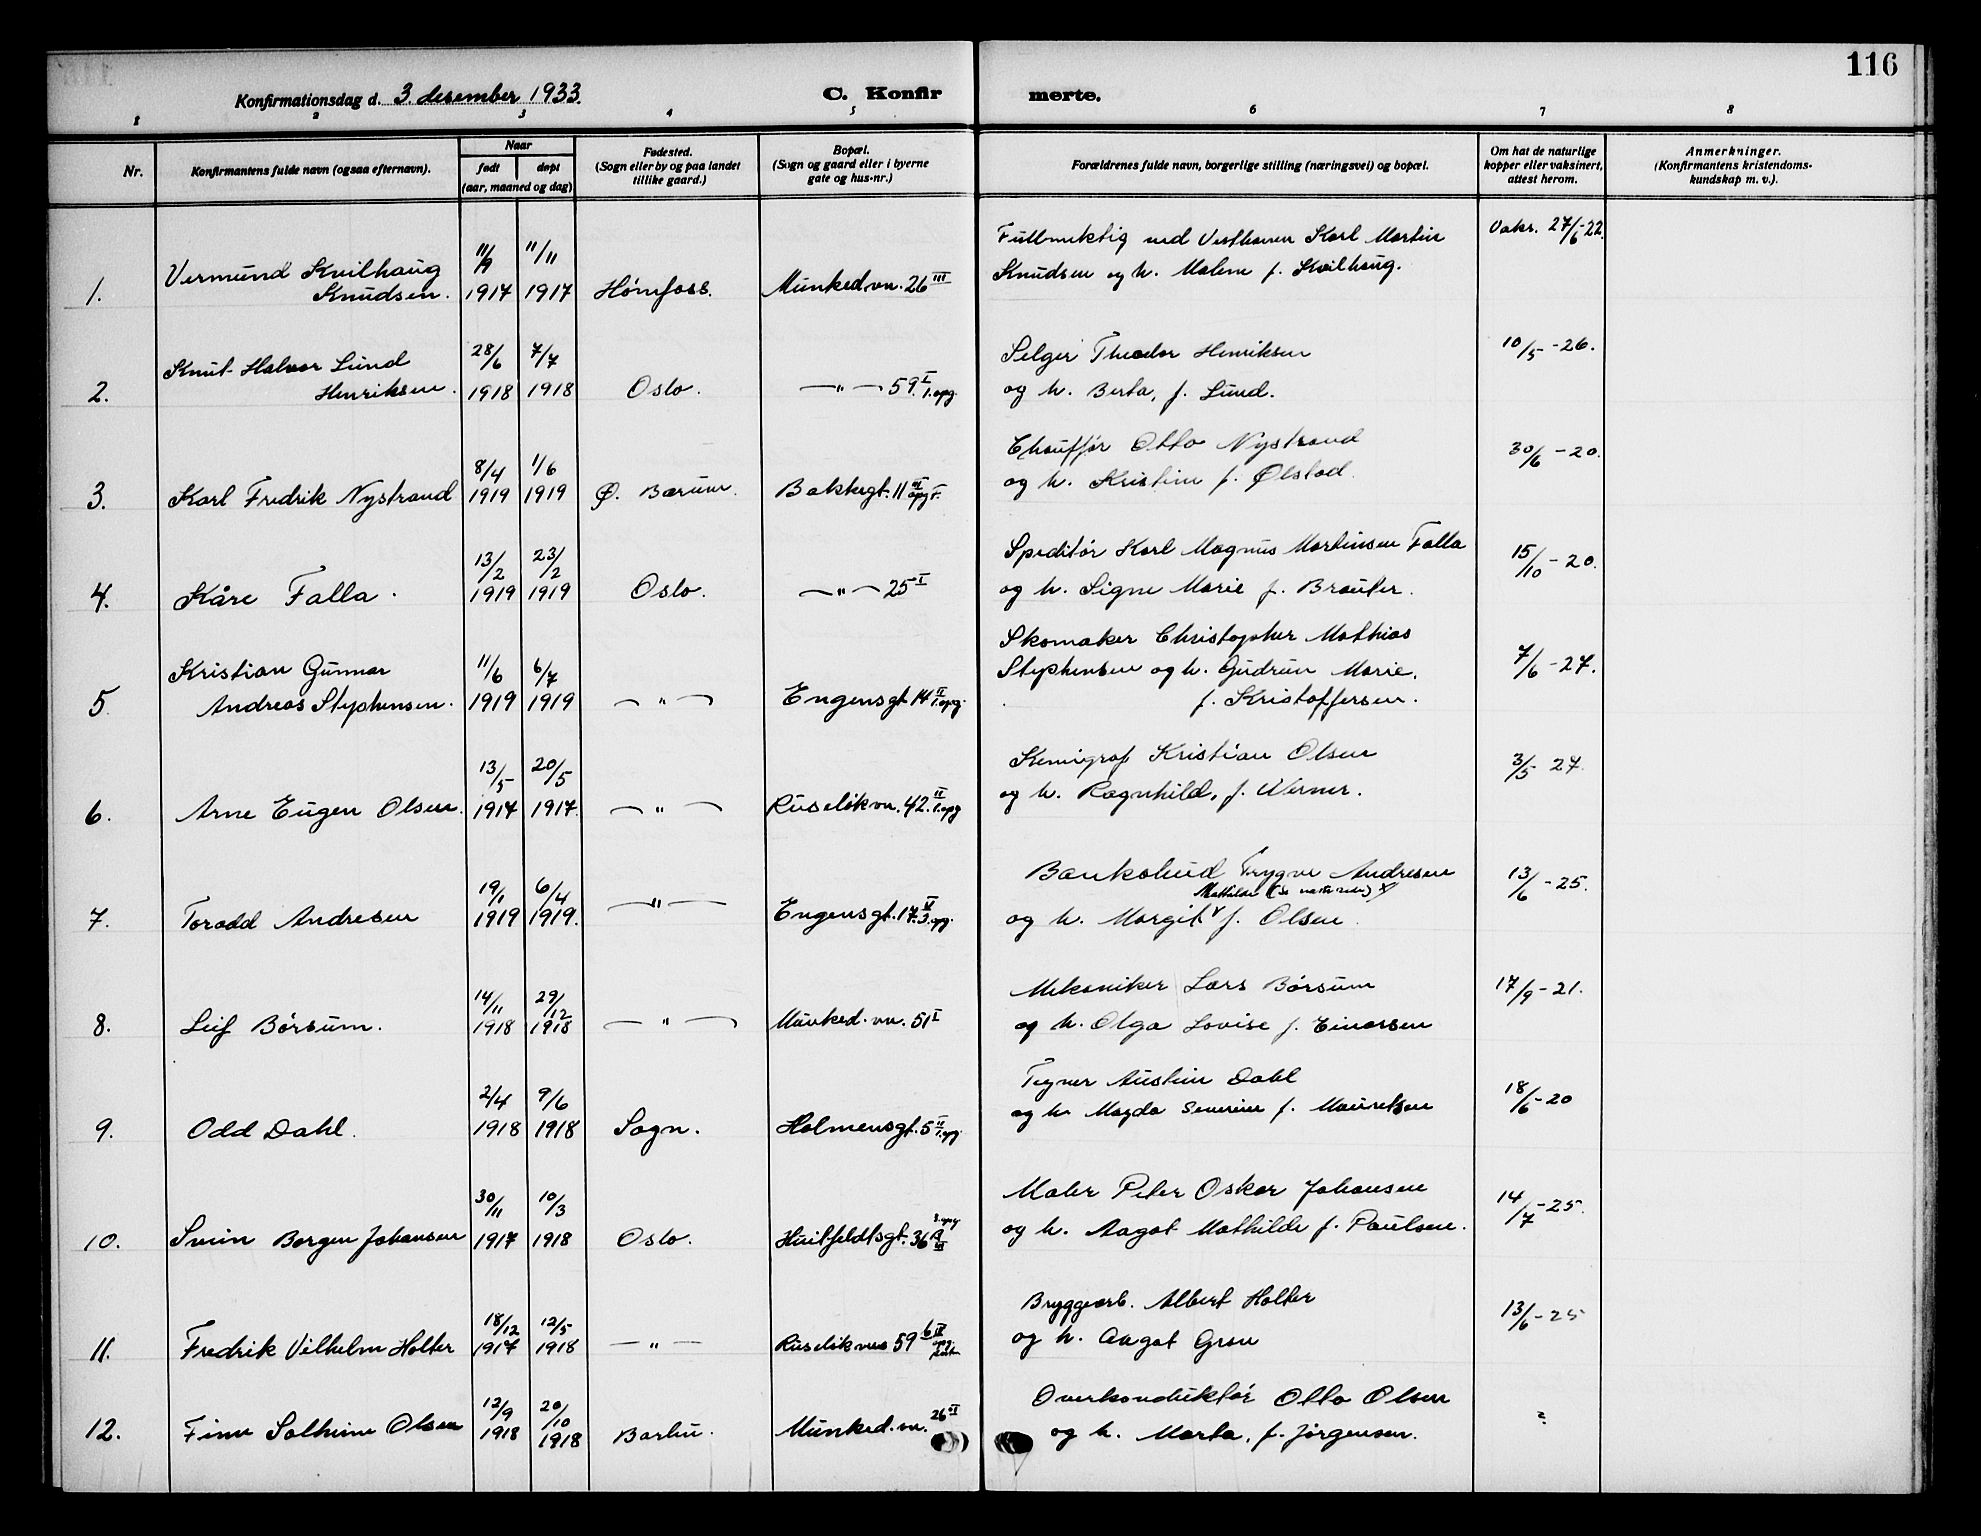 116
Konfirmationsdag d. 3. desember 1933.
C. Konfir merte.
1 2 3 4 5 6 7 8
Nr.
Konfirmantens fulde navn (ogsaa efternavn).
Naar
født døpt
(aar, maaned og dag)
Fødested.
(Sogn eller by og paa landet
tillike gaard.)
Bopæl.
(Sogn og gaard eller i byerne
gate og hus-nr.)
Forældrenes fulde navn, borgerlige stilling (næringsvei) og bopæl.
Om hat de naturlige
kopper eller vaksinert,
attest herom.
Anmerkninger.
(Konfirmantens kristendoms-
kundskap m. v.).
1. Vermund Kvilhaug Knudsen. 11/9 1917 11/11 1917 Hønefoss. Munked.vn. 26 III
Fullmektig ved Vesthavnen Karl Martin
Knudsen og h. Malene f. Kvilhaug.
Vaks. 27/6-22.
2. Knut Halvor Lund Henriksen. 28/6 1918 7/7 1918 Oslo. —"— 59. I 1. opg.
Selger Theodor Henriksen
og h. Berta, f. Lund.
10/5-26.
3. Karl Fredrik Nystrand 8/4 1919 1/6 1919 Ø. Bærum. Bakkegt. 11 III opg. 1.
Chauffør Otto Nystrand
og h. Kristine f. Ølstad.
30/6-20.
4. Kåre Falla. 13/2 1919 23/2 1919 Oslo. —"— 25 I
Speditør Karl Magnus Martinsen Falla
og h. Signe Marie f. Brauter.
15/10-20.
5. Kristian Gunnar Andreas Stephensen. 11/6 1919 6/7 1919 —"— Engensgt. 14 II 1. opg.
Skomaker Christopher Mathias
Stephensen og h. Gudrun Marie,
f. Kristoffersen.
7/6-27.
6. Arne Eugen Olsen. 13/5 1917 20/5 1917. —"— Ruseløkvn. 42. II 1. opg
Kemigraf Kristian Olsen
og h. Ragnhild, f. Werner.
3/5 27.
7. Toradd Andresen 19/1 1919 6/4 1919. —"— Engensgt. 17. V 3. opg.
Bankbud Trygve Andresen
Mathilde
og h. Margit f. Olsen.
13/6-25.
8. Leif Børsum. 14/11 1918 29/12 1918 —"— Munked. vn. 51 I
Mekaniker Lars Børsum
og h. Olga Lovise f. Einarsen
17/9-21.
9. Odd Dahl. 2/4 1918 9/6 1918 Sogn. Holmensgt. 5 II 1. opg.
Tegner Austin Dahl
og h. Magda Severine f. Mauritsen
18/6-20
10. Svein Borgen Johansen 30/11 1917 10/3 1918 Oslo. Huitfeldtsgt. 36 III
Maler Peter Oskar Johansen
og h. Aagot Mathilde f. Paulsen.
14/7-25.
11. Fredrik Vilhelm Holter 18/12 1917 12/5 1918 —"— Ruseløkveien 59
Bryggearb. Albert Holter
og h. Aagot Grøn
13/6-25
12. Finn Solheim Olsen 12/9 1918 20/10 1918 Barbu. Munked. vn. 26 II
Overkonduktør Otto Olsen
og h. Marta, f. Jørgensen.
?